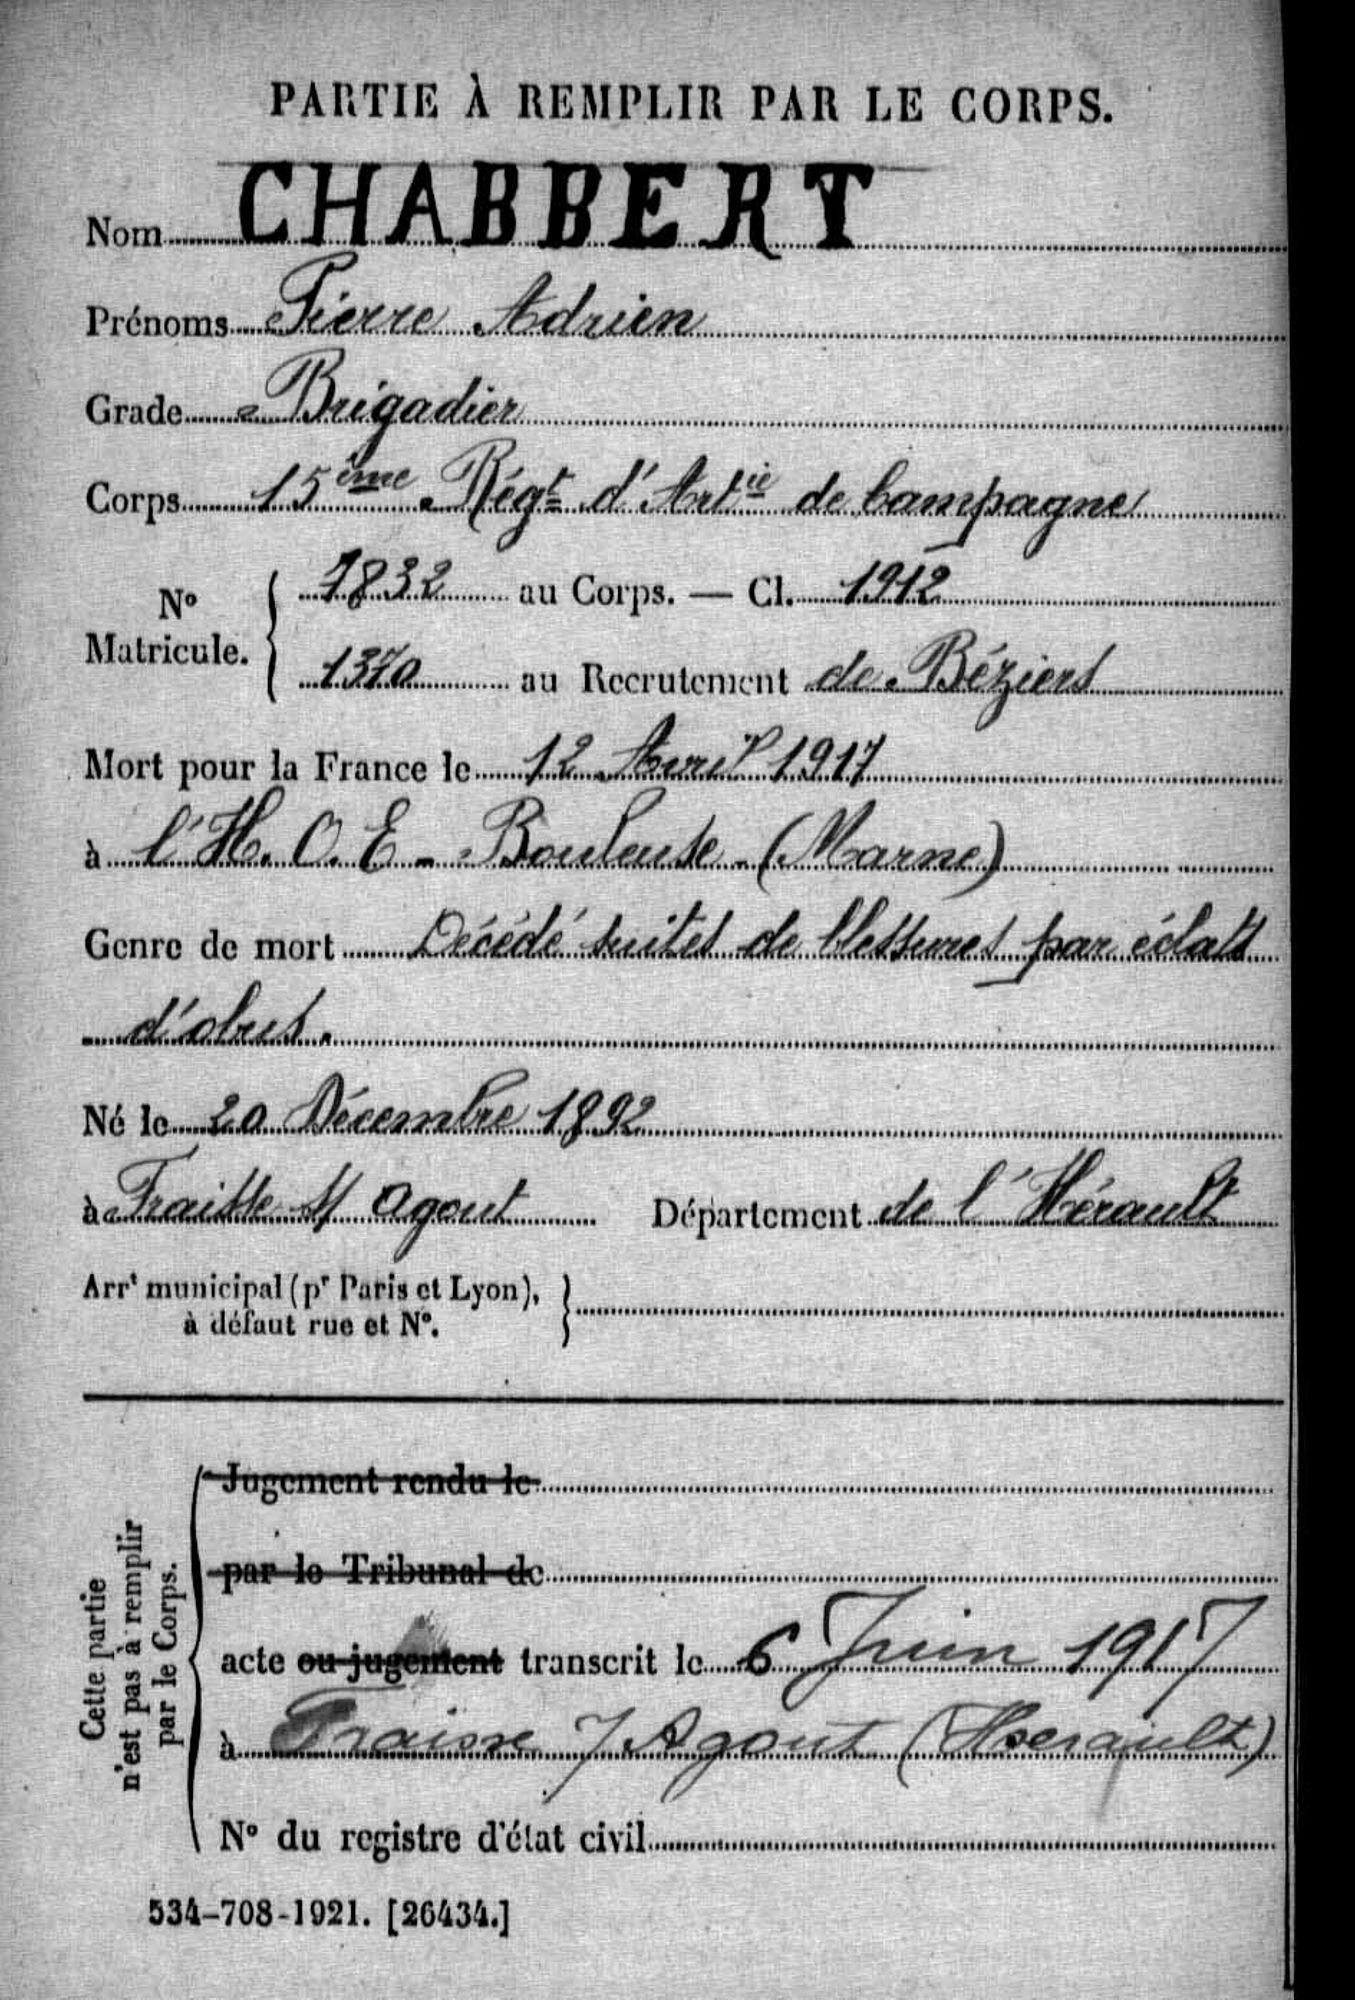 PARTIE À REMPLIR PAR LE CORPS.
Nom CHABBERT
Prénoms Pierre Adrien
Grade Brigadier
Corps 15ème Régt d'Artie de Campagne
N° Matricule. { 7832 au Corps. — Cl. 1912
1370 au Recrutement de Béziers
Mort pour la France le 12 Avril 1917
à l'H.O.E - Bouleuse - (Marne)
Genre de mort Décédé suites de blessures par éclats
d'obus.
Né le 20 Décembre 1892
à Fraisse s/ Agout Département de l'Hérault
Arrt municipal (pr Paris et Lyon), }
à défaut rue et N°.
Cette partie
n'est pas à remplir
par le Corps.
Jugement rendu le
par le Tribunal de
acte ou jugement transcrit le 6 Juin 1917
à Fraisse s/ Agout (Herault)
N° du registre d'état civil
534-708-1921. [26434.]